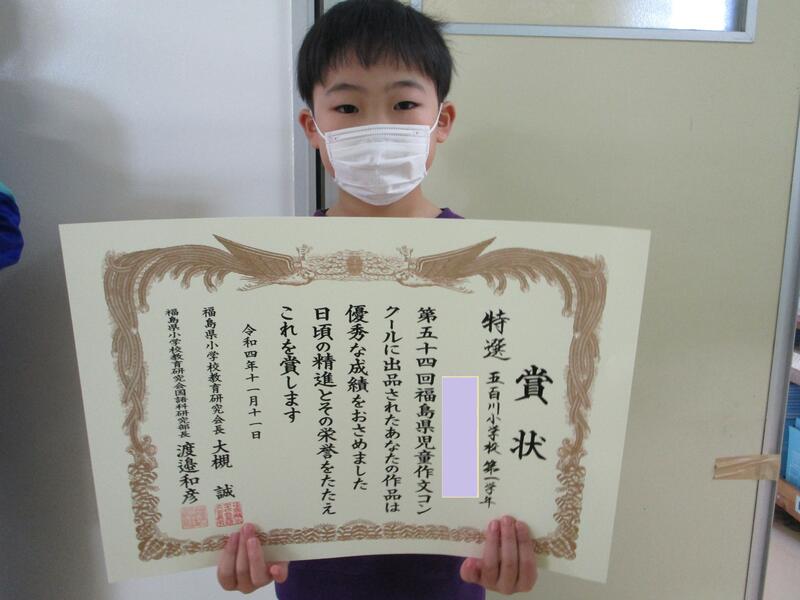 賞状
特選 五百川小学校 第一学年
第五十四回福島県児童作文コン
クールに出品されたあなたの作品は
優秀な成績をおさめました
日頃の精進とその栄誉をたたえ
これを賞します
令和四年十一月十一日
福島県小学校教育研究会長 大槻 誠
福島県小学校教育研究会国語科研究部長 渡邉和彦